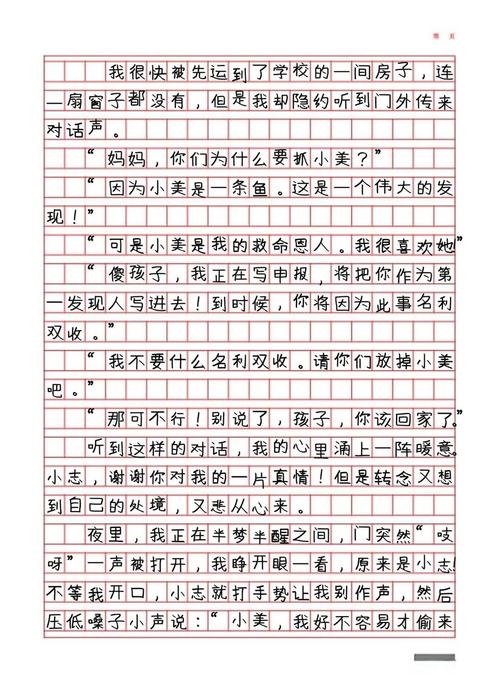 我很快被先运到了学校的一间房子，连
一扇窗子都没有，但是我却隐约听到门外传来
对话声。
“妈妈，你们为什么要抓小美？”
“因为小美是一条鱼。这是一个伟大的发
现！”
“可是小美是我的救命恩人。我很喜欢她”
“傻孩子，我正在写申报，将把你作为第
一发现人写进去！到时候，你将因为此事名利
双收。”
“我不要什么名利双收。请你们放掉小美
吧。”
“那可不行！别说了，孩子，你该回家了。”
听到这样的对话，我的心里涌上一阵暖意。
小志，谢谢你对我的一片真情！但是转念又想
到自己的处境，又悲从心来。
夜里，我正在半梦半醒之间，门突然“吱
呀”一声被打开，我睁开眼一看，原来是小志！
不等我开口，小志就打手势让我别作声，然后
压低嗓子小声说：“小美，我好不容易才偷来